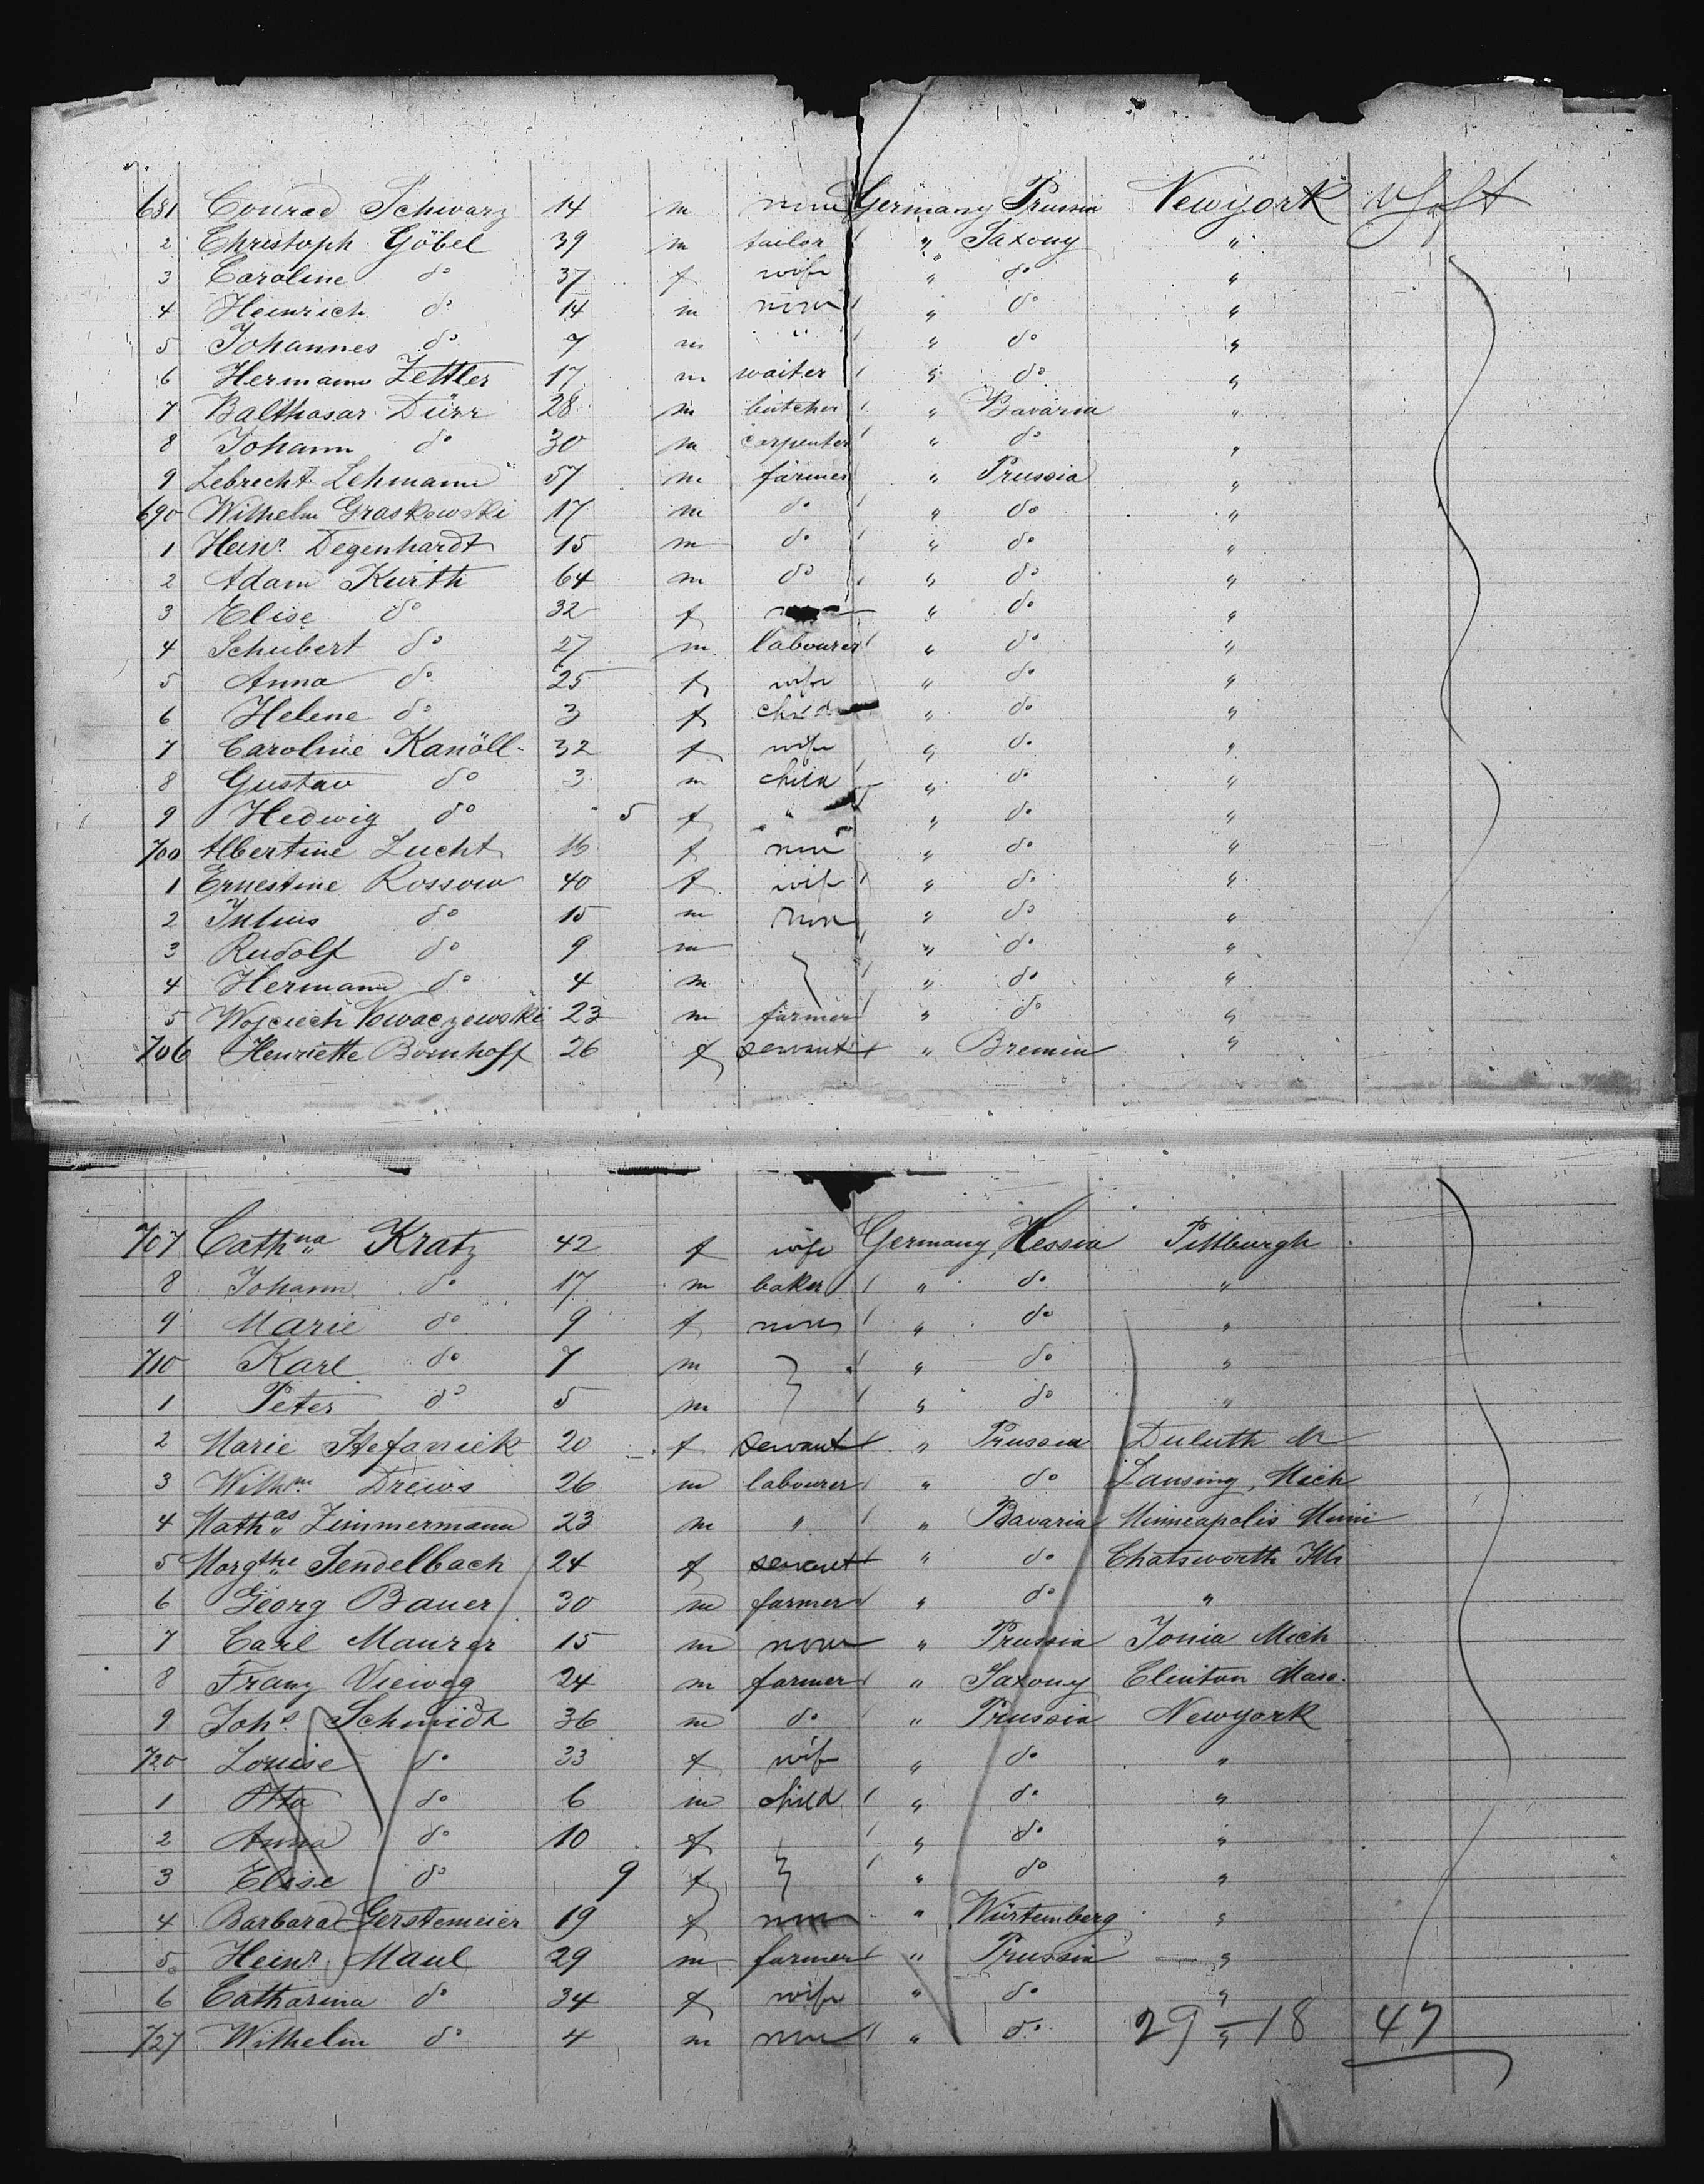 681 Conrad Schwarz 14 m none Germany Prussia Newyork
2 Christoph Göbel 39 m tailor " Saxony "
3 Caroline do 37 f wife " do "
4 Heinrich do 14 m none " do "
5 Johannes do 7 m " " do "
6 Hermann Zettler 17 m waiter " do "
7 Balthasar Dürr 28 m butcher " Bavaria "
8 Johann do 30 m carpenter " do "
9 Lebrecht Lehmann 57 m farmer " Prussia "
690 Wilhelm Graskowski 17 m do " do "
1 Heinr. Degenhardt 15 m do " do "
2 Adam Kurth 64 m do " do "
3 Elise do 32 f " do "
4 Schubert do 27 m labourer " do "
5 Anna do 25 f wife " do "
6 Helene do 3 f child " do "
7 Caroline Kanöll 32 f wife " do "
8 Gustav do 3 m child " do "
9 Hedwig do 5 f " " do "
700 Albertine Zucht 16 f none " do "
1 Ernestine Rossow 40 f wife " do "
2 Julius do 15 m none " do "
3 Rudolf do 9 m " do "
4 Hermann do 4 m } " do "
5 Wojciech 23 m farmer " do "
706 Henriette Bornhoff 26 f servant " Bremen "
707 Cathna Kratz 42 f wife Germany, Hessia Pittburgh
8 Johann do 17 m baker " do "
9 Marie do 9 f none " do "
710 Karl do 7 m } " do "
1 Peter do 5 m " do "
2 Marie Stefaniek 20 f servant " Prussia Duluth
3 Wilhm Drews 26 m labourer " do Lansing, Mich
4 Mathas Zimmermann 23 m " " Bavaria Minneapolis Minn
5 Margthe Sendelbach 24 f servant " do Chatsworth Ills
6 Georg Bauer 30 m farmer " do "
7 Carl Maurer 15 m none " Prussia Jonia Mich
8 Franz Vieweg 24 m farmer " Saxony Clinton Mass.
9 Johs Schmidt 36 m do " Prussia Newyork
720 Louise do 33 f wife " do "
1 Otto do 6 m child " do "
2 Anna do 10 f " do "
3 Elise do 9 f } " do "
4 Barbara Gerstemeier 19 f none " Würtemberg "
5 Heinr. Maul 29 m farmer " Prussia "
6 Catharina do 34 f wife " do "
727 Wilhelm do 4 m none " do "
29 – 18 47